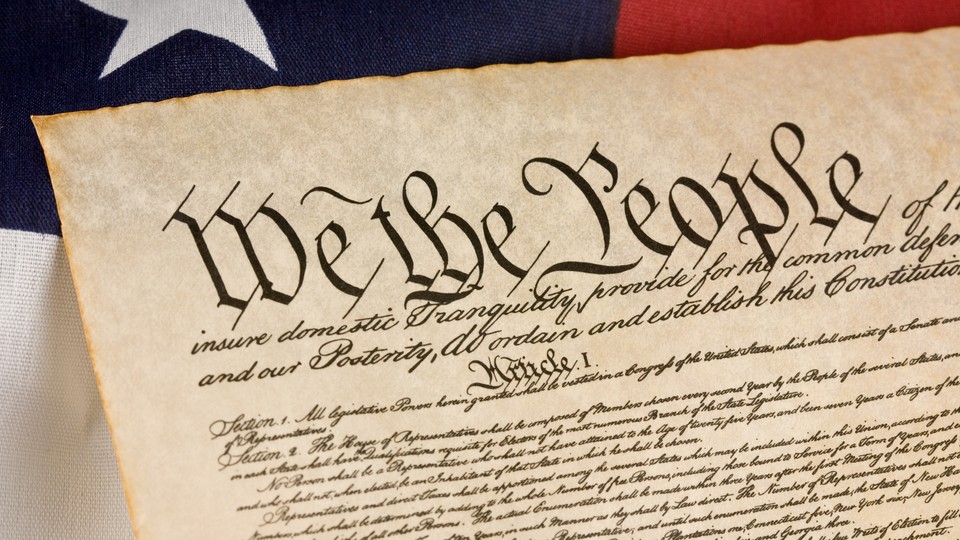 We the People of
insure domestic Tranquility, provide for the common defen
and our Posterity, do ordain and establish this Constitutio
Article. I.
Section. 1. All legislative Powers herein granted shall be vested in a Congress of the United States, which shall consist of a Senate and
of Representatives.
Section. 2. The House of Representatives shall be composed of Members chosen every second Year by the People of the several States, an
in each State shall have the Qualifications requisite for Electors of the most numerous Branch of the State Legislature.
No Person shall be a Representative who shall not have attained to the Age of twenty five Years, and been seven Years a Citizen of the
who shall not, when elected, be an Inhabitant of that State in which he shall be chosen.
Representatives and direct Taxes shall be apportioned among the several States which may be included within this Union, according to th
Numbers, which shall be determined by adding to the whole Number of free Persons, including those bound to Service for a Term of Years, and e
of all other Persons. The actual Enumeration shall be made within three Years after the first Meeting of the Congress
Ten Years, in such Manner as they shall by Law direct. The Number of Representatives shall not
Representative; and until such enumeration shall be made, the State of New Ha
Plantations one, Connecticut five, New York six, New Jersey
and Georgia three.
Writs of Election to fill